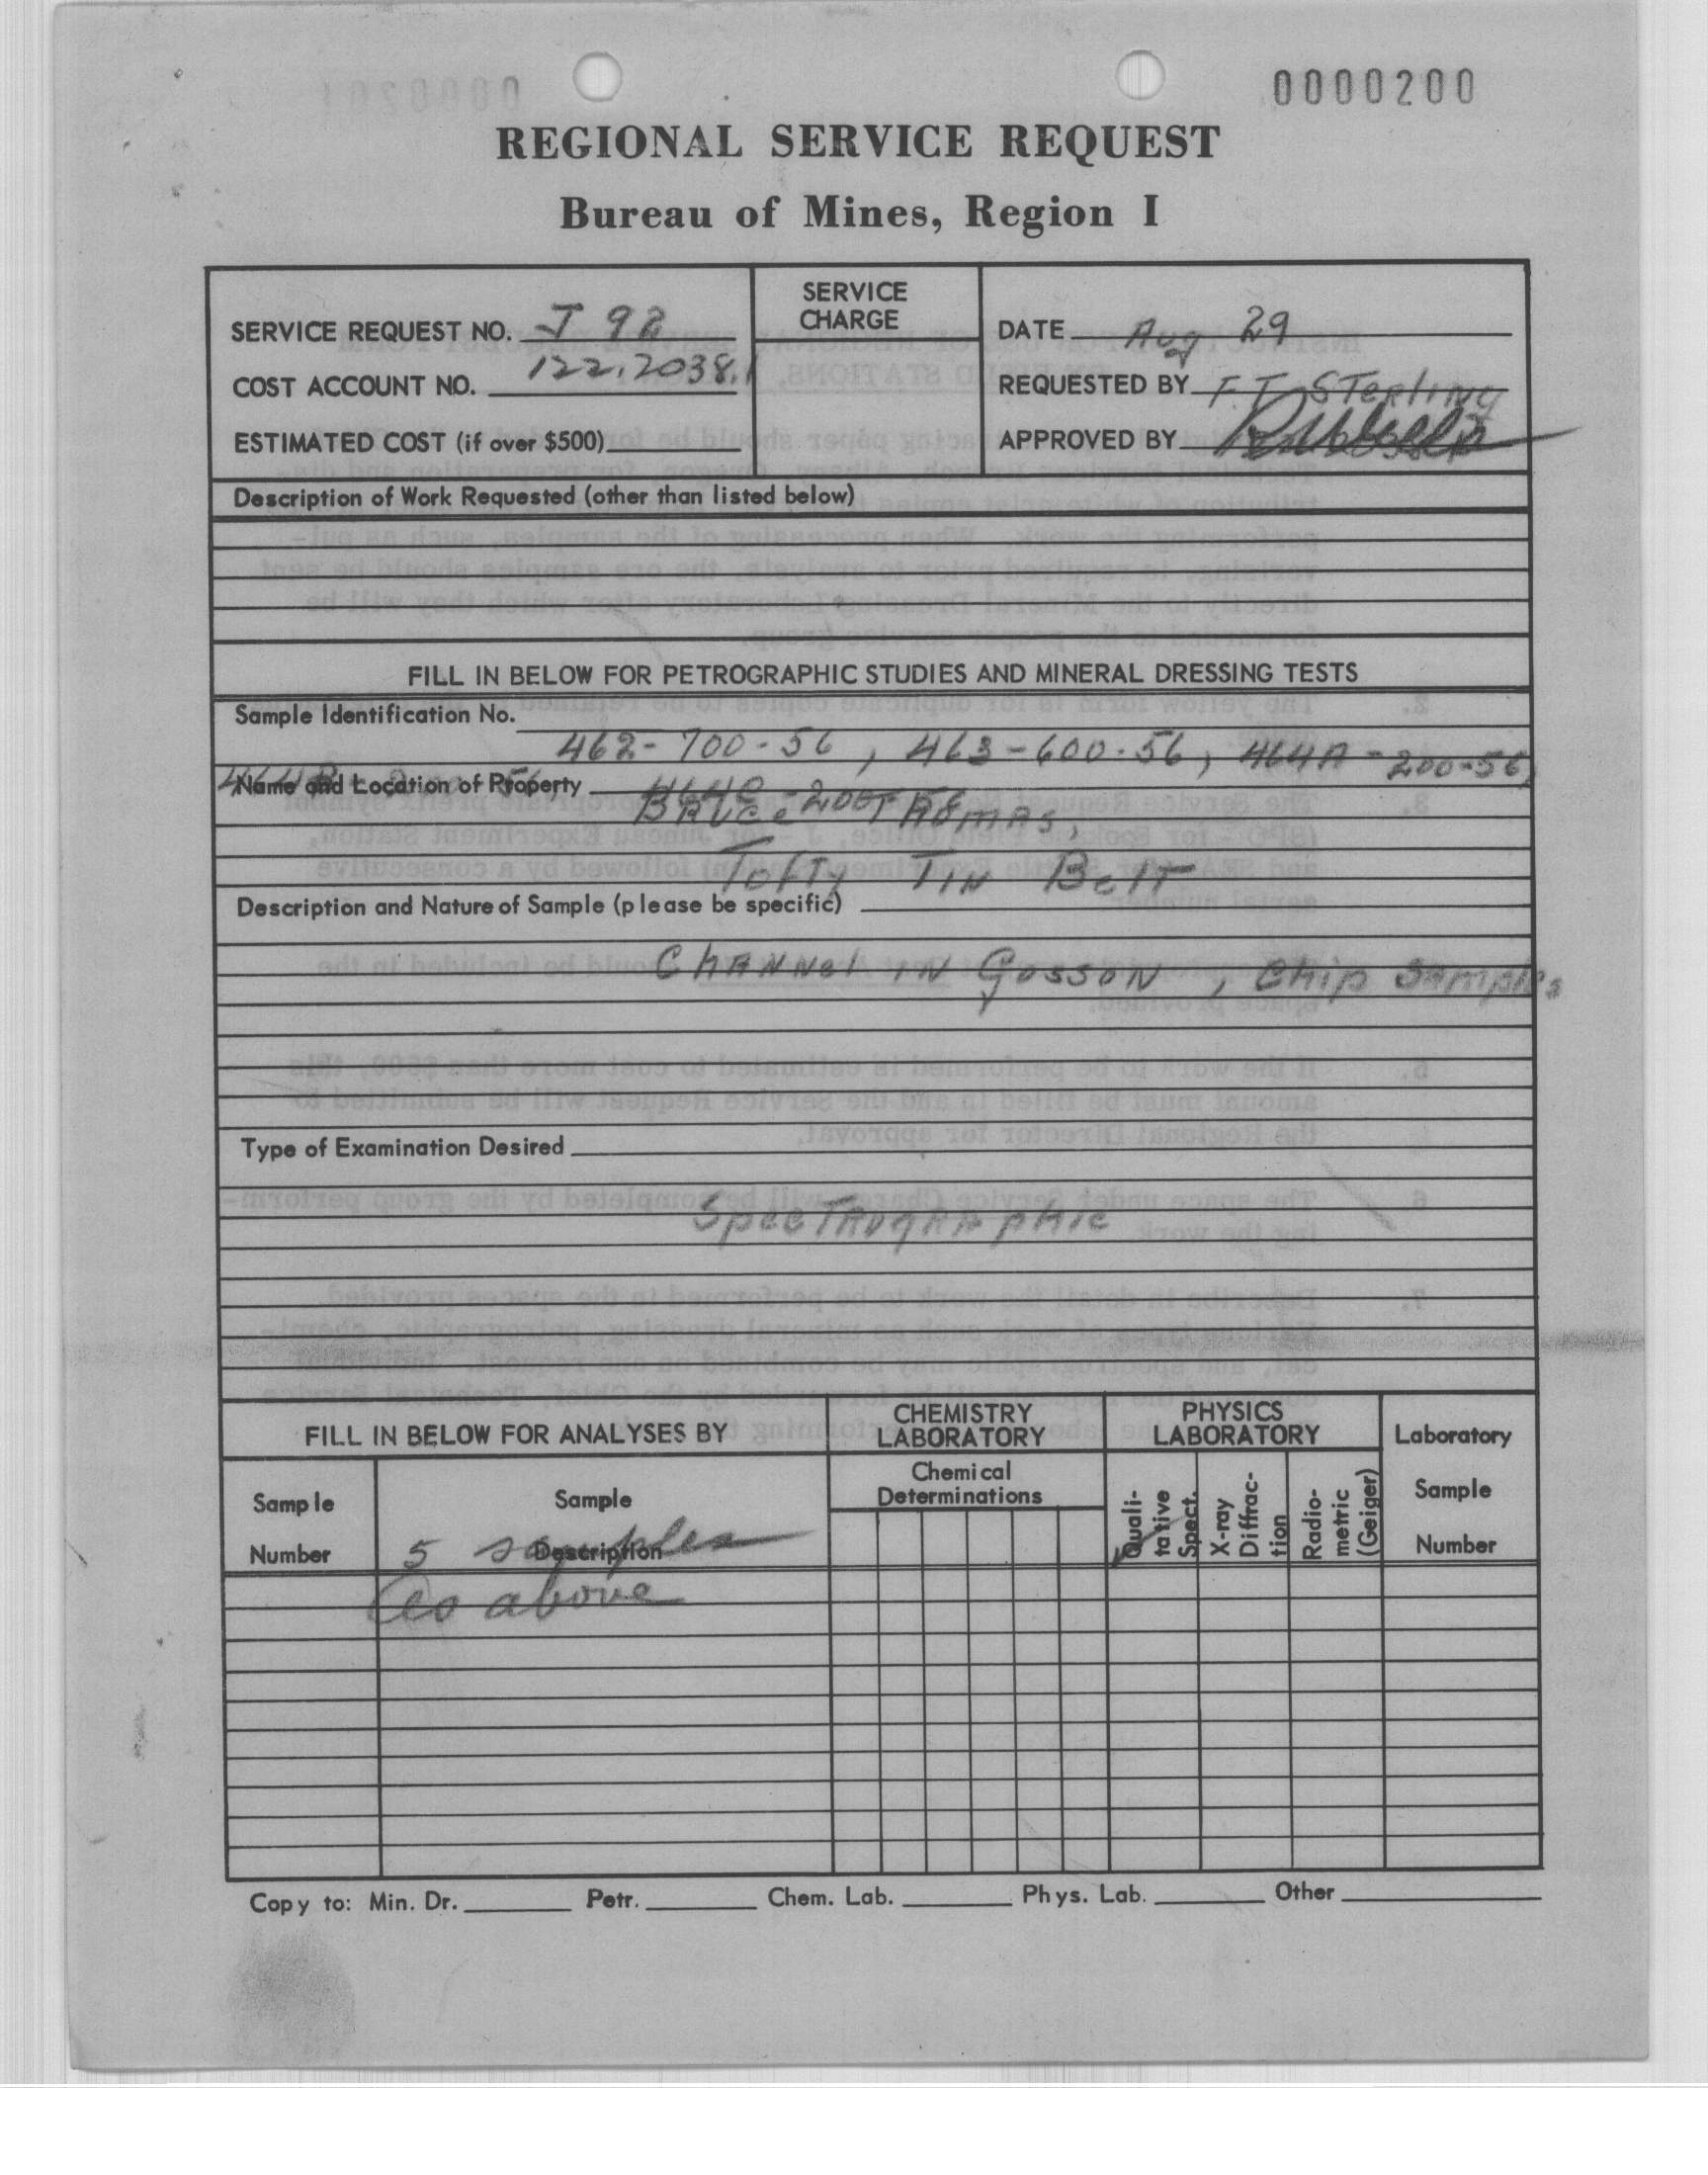 0000200
REGIONAL SERVICE REQUEST
Bureau of Mines, Region I
SERVICE REQUEST NO. J 92
COST ACCOUNT NO. 122.2038.1
ESTIMATED COST (if over $500)
SERVICE
CHARGE
DATE Aug 29
REQUESTED BY F.T. STerling
APPROVED BY
Description of Work Requested (other than listed below)
FILL IN BELOW FOR PETROGRAPHIC STUDIES AND MINERAL DRESSING TESTS
Sample Identification No.
462-700-56, 463-600-56, 464A-200-56,
464B-200-56 464C-200-56
Name and Location of Property
Bruce Thomas,
Tofty Tin Belt
Description and Nature of Sample (please be specific)
Channel in Gosson, Chip Samples
Type of Examination Desired
Spectrographic
FILL IN BELOW FOR ANALYSES BY
CHEMISTRY
LABORATORY
PHYSICS
LABORATORY
Laboratory
Sample
Number
Sample
Number
Sample
Description
5 samples
as above
Chemical
Determinations
Quali-
tative
Spect.
X-ray
Diffrac-
tion
Radio-
metric
(Geiger)
Copy to: Min. Dr. Petr. Chem. Lab. Phys. Lab. Other